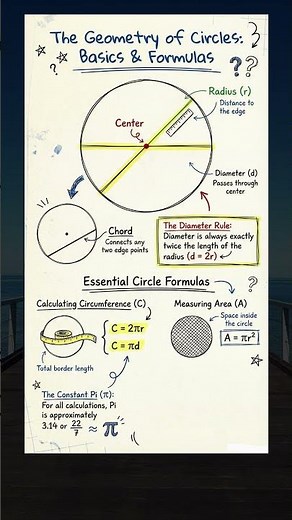 The Geometry of Circles:
Basics & Formulas
??
?
Radius (r)
Distance to
the edge
Center
Diameter (d)
Passes through
center
Chord
Connects any
two edge points
The Diameter Rule:
Diameter is always exactly
twice the length of the
radius (d = 2r)
Essential Circle Formulas
?
Calculating Circumference (C)
C = 2πr
C = πd
Total border length
Measuring Area (A)
Space inside
the circle
A = πr²
The Constant Pi (π):
For all calculations, Pi
is approximately
3.14 or 22/7 ≈ π